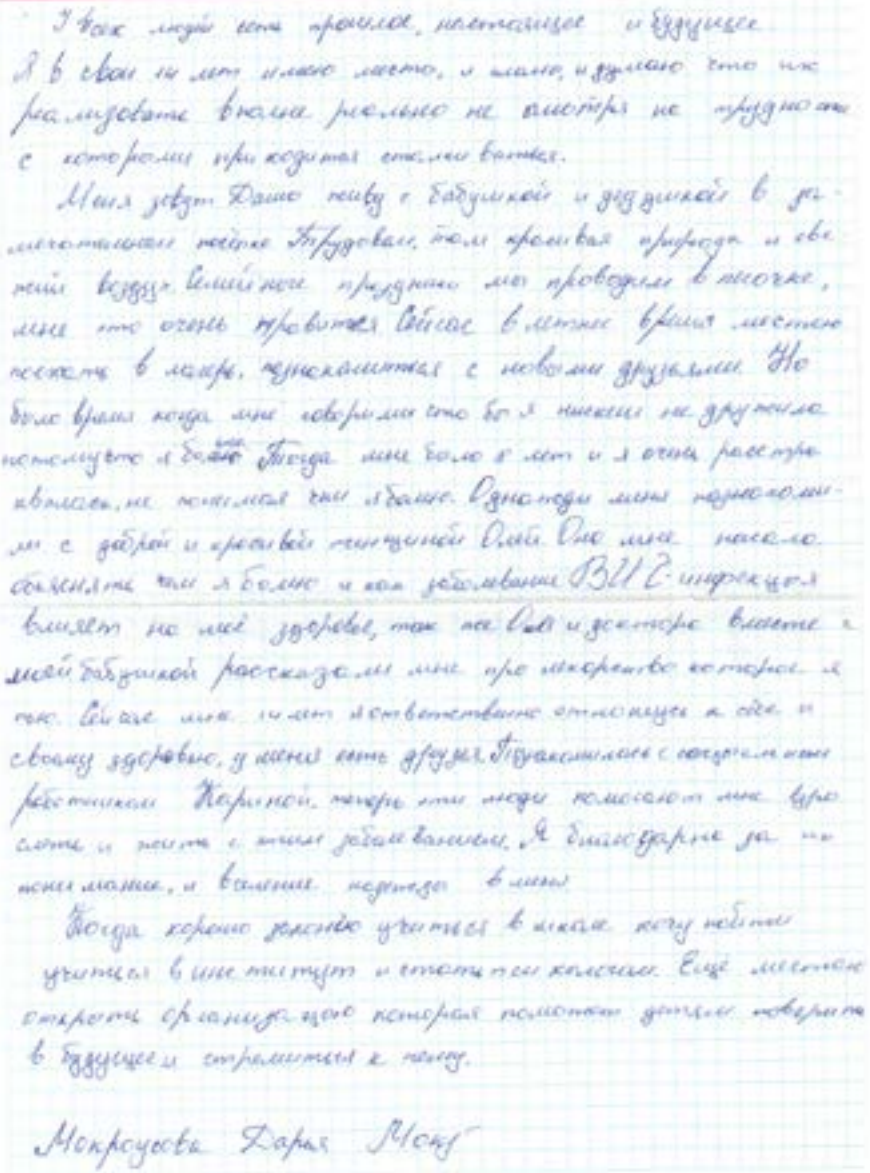 У всех людей есть прошлое, настоящее и будущее
Я в свои 14 лет имею мечты, и планы, и думаю что их
реализовать вполне реально не смотря на трудности
с которыми приходится сталкиваться.
Меня зовут Даша живу с бабушкой и дедушкой в за-
мечательном посёлке Трудовам, там красивая природа и све
жий воздух. Семейные праздники мы проводим в
мне это очень нравится Сейчас в летнее время мечтаю
поехать в лагерь, познакомиться с новыми друзьями Но
было время когда мне говорили что бы я ни с кем не дружила
потомучто я болею Тогда мне было 8 лет и я очень расстра
ивалась, не понимая чем я болею. Однажды меня познакоми-
ли с доброй и красивой женщиной Олей Она мне начала
объяснять чем я болею и как заболевание ВИЧ-инфекция
влияет на моё здоровье, так же Оля и доктора вместе с
моей бабушкой рассказали мне про лекарство которое я
пью. Сейчас мне 14 лет я ответственно отношусь к себе и
своему здоровью, у меня есть друзья. Познакомилась с социальным
работником Кариной, теперь эти люди помогают мне взро
слеть и жить с этим заболеванием. Я благодарна за их
понимание, и вселение надежды в меня
Когда хорошо закончу учиться в школе хочу пойти
учиться в институт и стать психологом. Ещё мечтаю
открыть организацию которая поможет детям поверить
в будущее и стремиться к нему.
Мокроусова Дарья